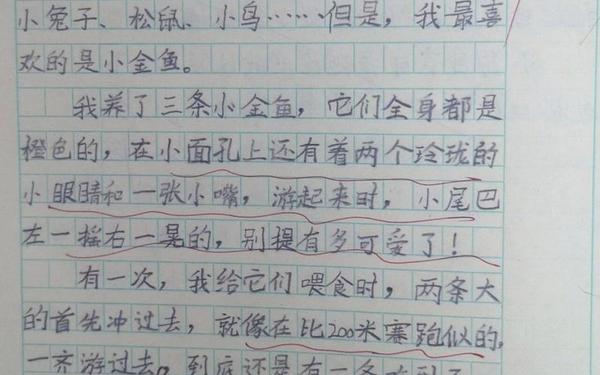 小兔子、松鼠、小鸟……但是，我最喜
欢的是小金鱼。
我养了三条小金鱼，它们全身都是
橙色的，在小面孔上还有着两个玲珑的
小眼睛和一张小嘴，游起来时，小尾巴
左一摇右一晃的，别提有多可爱了！
有一次，我给它们喂食时，两条大
的首先冲过去，就像在比200米赛跑似的，
一齐游过去。到底还是有一条